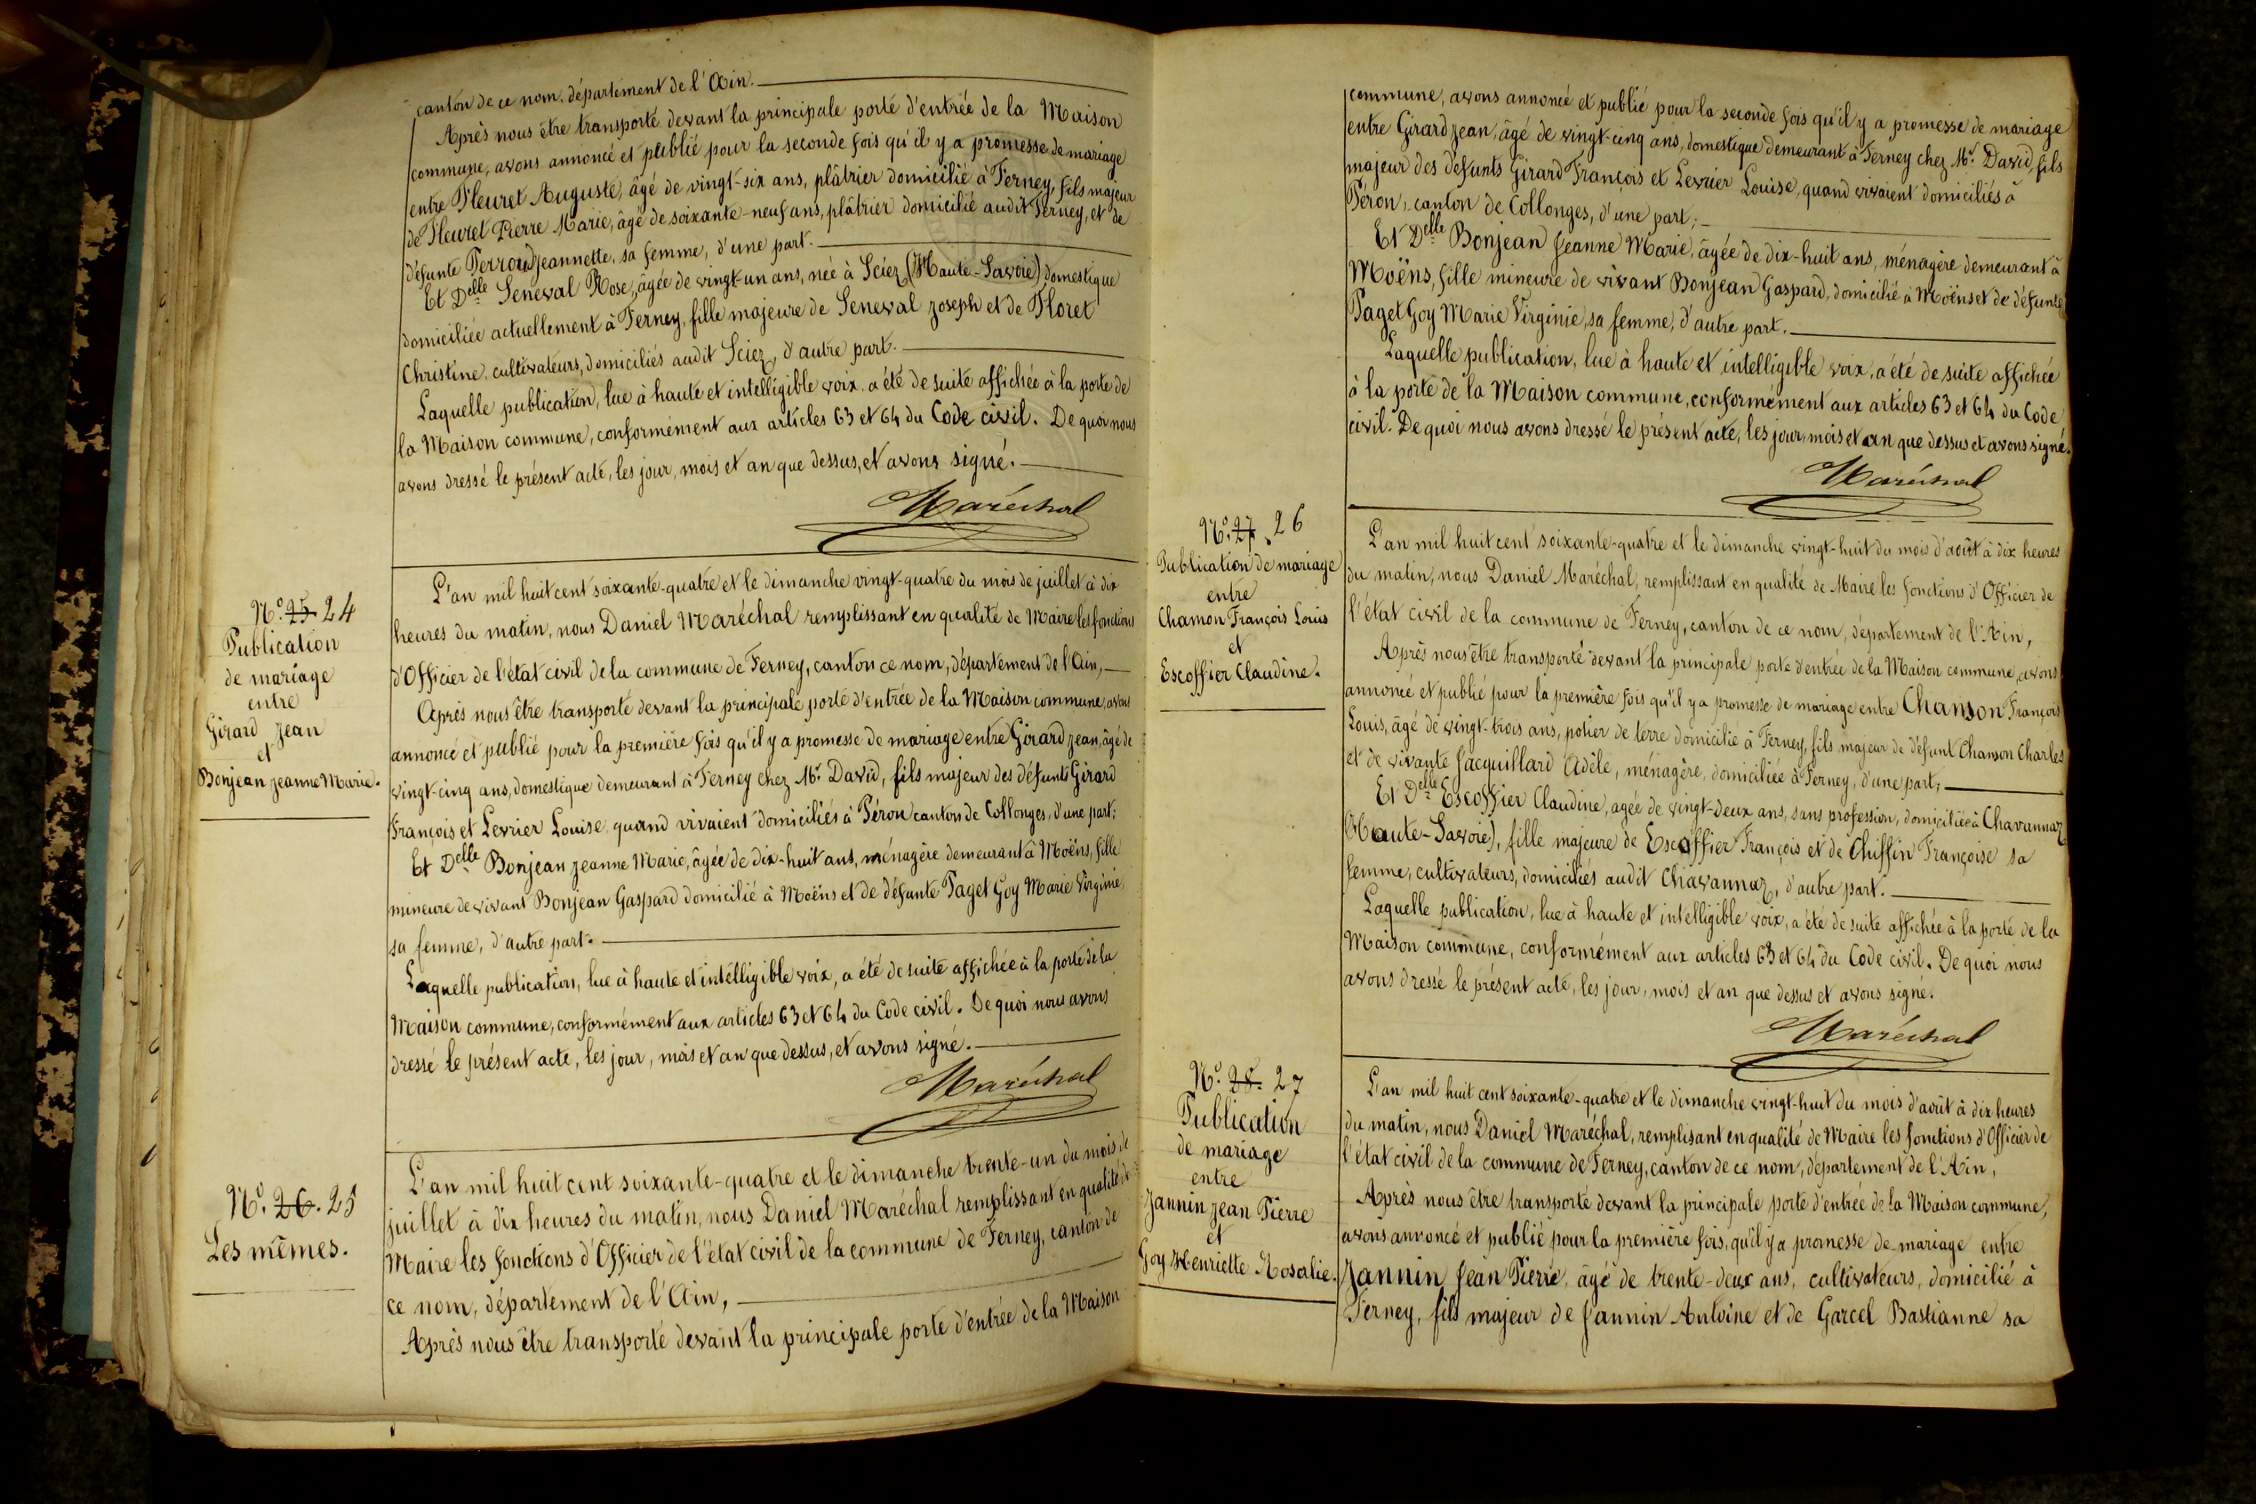 canton de ce nom, département de l'Ain.
Après nous être transporté devant la principale porte d'entrée de la Maison
commune, avons annoncé et publié pour la seconde fois qu'il y a promesse de mariage
entre Fleuret Auguste, âgé de vingt-six ans, plâtrier domicilié à Ferney, fils majeur
de Fleuret Pierre Marie, âgé de soixante-neuf ans, plâtrier domicilié audit Ferney, et de
défunte Perroud Jeannette, sa femme, d'une part.
Et Delle Seneval Rose, âgée de vingt-un ans, née à Sciez (Haute-Savoie) domestique
domiciliée actuellement à Ferney, fille majeure de Seneval Joseph et de Floret
Christine, cultivateurs, domiciliés audit Sciez, d'autre part.
Laquelle publication, lue à haute et intelligible voix, a été de suite affichée à la porte de
la Maison commune, conformément aux articles 63 et 64 du Code civil. De quoi nous
avons dressé le présent acte, les jour, mois et an que dessus, et avons signé.
Maréchal
No. 25 24
Publication
de mariage
entre
Girard Jean
et
Bonjean Jeanne Marie.
L'an mil huit cent soixante-quatre et le dimanche vingt-quatre du mois de juillet à dix
heures du matin, nous Daniel Maréchal remplissant en qualité de Maire les fonctions
d'Officier de l'état civil de la commune de Ferney, canton ce nom, département de l'Ain,
Après nous être transporté devant la principale porte d'entrée de la Maison commune, avons
annoncé et publié pour la première fois qu'il y a promesse de mariage entre Girard Jean, âgé de
vingt-cinq ans, domestique demeurant à Ferney chez Mr. David, fils majeur des défunts Girard
François et Levrier Louise quand vivaient domiciliés à Péron canton de Collonges, d'une part;
Et Delle Bonjean Jeanne Marie, âgée de dix-huit ans, ménagère demeurant à Moëns, fille
mineure de vivant Bonjean Gaspard domicilié à Moëns et de défunte Paget Goy Marie Virginie,
sa femme, d'autre part.
Laquelle publication, lue à haute et intelligible voix, a été de suite affichée à la porte de la
Maison commune, conformément aux articles 63 et 64 du Code civil. De quoi nous avons
dressé le présent acte, les jour, mois et an que dessus, et avons signé.
Maréchal
No. 26. 25
Les mêmes.
L'an mil huit cent soixante-quatre et le dimanche trente-un du mois de
juillet à dix heures du matin, nous Daniel Maréchal remplissant en qualité de
Maire les fonctions d'Officier de l'état civil de la commune de Ferney, canton de
ce nom, département de l'Ain,
Après nous être transporté devant la principale porte d'entrée de la Maison
commune, avons annoncé et publié pour la seconde fois qu'il y a promesse de mariage
entre Girard Jean, âgé de vingt-cinq ans, domestique demeurant à Ferney chez Mr. David, fils
majeur des défunts Girard François et Levrier Louise, quand vivaient domiciliés à
Péron, canton de Collonges, d'une part;
Et Delle Bonjean Jeanne Marie, âgée de dix-huit ans, ménagère demeurant à
Moëns, fille mineure de vivant Bonjean Gaspard, domicilié à Moëns et de défunte
Paget Goy Marie Virginie, sa femme, d'autre part.
Laquelle publication, lue à haute et intelligible voix, a été de suite affichée
à la porte de la Maison commune, conformément aux articles 63 et 64 du Code
civil. De quoi nous avons dressé le présent acte, les jour, mois et an que dessus et avons signé.
Maréchal
No. 27. 26
Publication de mariage
entre
Chamon François Louis
et
Escoffier Claudine.
L'an mil huit cent soixante-quatre et le dimanche vingt-huit du mois d'août à dix heures
du matin, nous Daniel Maréchal, remplissant en qualité de Maire les fonctions d'Officier de
l'état civil de la commune de Ferney, canton de ce nom, département de l'Ain,
Après nous être transporté devant la principale porte d'entrée de la Maison commune, avons
annoncé et publié pour la première fois qu'il y a promesse de mariage entre Chanson François
Louis, âgé de vingt-trois ans, potier de terre domicilié à Ferney, fils majeur de défunt Chamon Charles
et de vivante Jacquillard Adèle, ménagère, domiciliée à Ferney, d'une part,
Et Delle Escoffier Claudine, agée de vingt-deux ans, sans profession, domiciliée à Chavannaz
(Haute-Savoie), fille majeure de Escoffier François et de Chiffin Françoise sa
femme, cultivateurs, domiciliés audit Chavannaz, d'autre part.
Laquelle publication, lue à haute et intelligible voix, a été de suite affichée à la porte de la
Maison commune, conformément aux articles 63 et 64 du Code civil. De quoi nous
avons dressé le présent acte, les jour, mois et an que dessus et avons signé.
Maréchal
No. 28. 27
Publication
de mariage
entre
Jannin Jean Pierre
et
Goy Henriette Rosalie.
L'an mil huit cent soixante-quatre et le dimanche vingt-huit du mois d'août à dix heures
du matin, nous Daniel Maréchal, remplisant en qualité de Maire les fonctions d'Officier de
l'état civil de la commune de Ferney, canton de ce nom, département de l'Ain,
Après nous être transporté devant la principale porte d'entrée de la Maison commune,
avons annoncé et publié pour la première fois, qu'il y a promesse de mariage entre
Jannin Jean Pierre, âgé de trente-deux ans, cultivateurs, domicilié à
Ferney, fils majeur de Jannin Antoine et de Garcel Bastianne sa